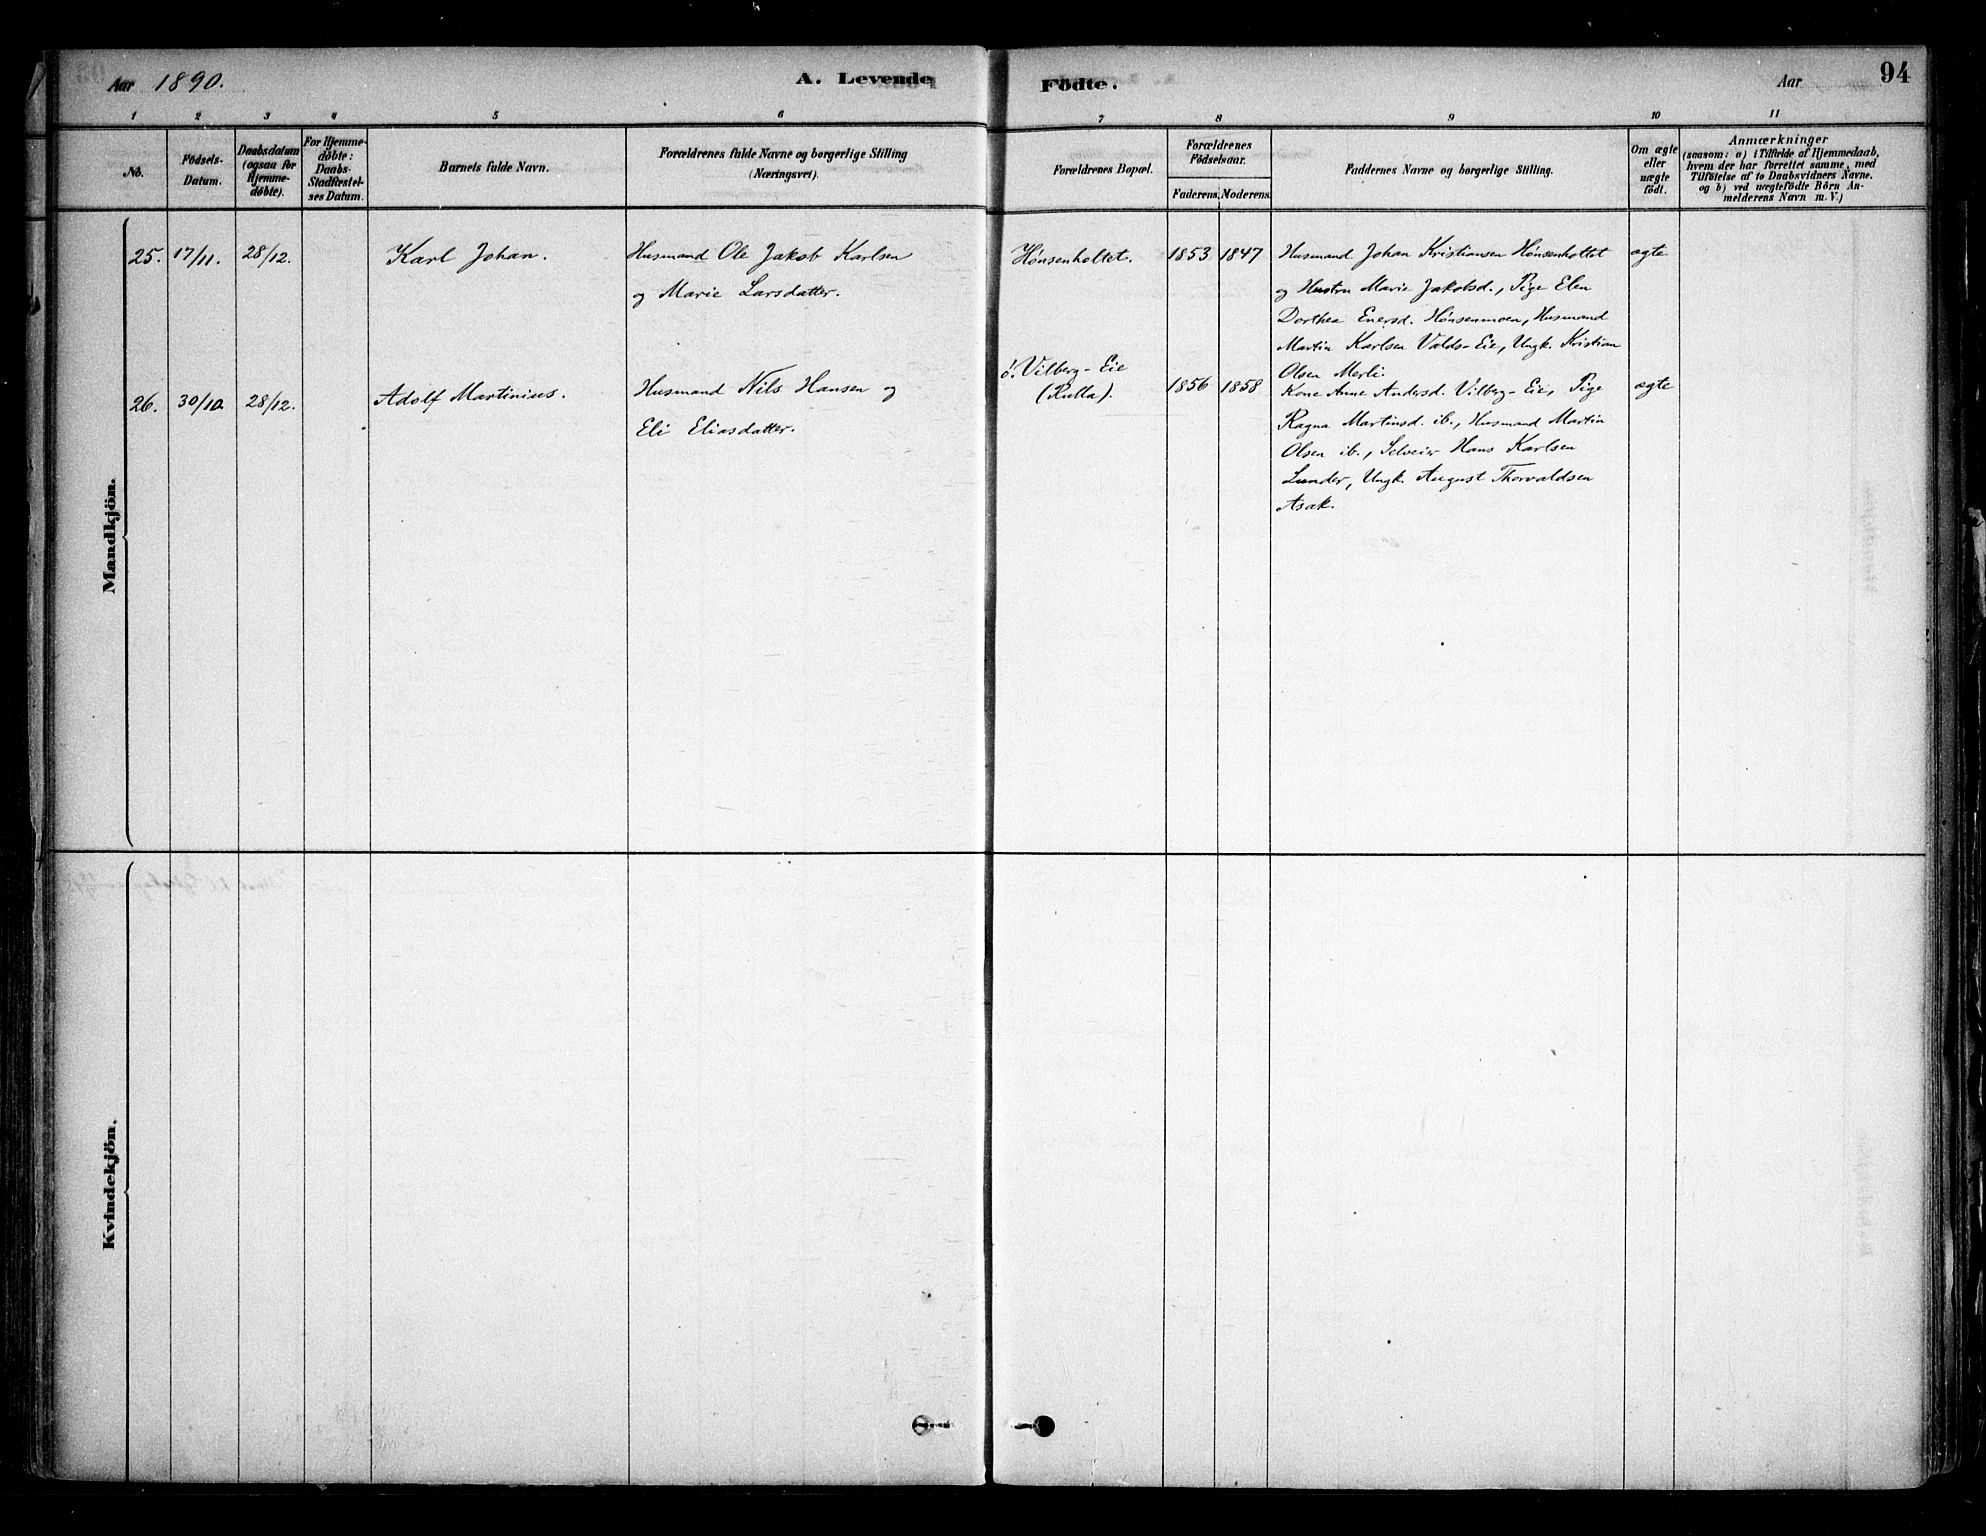 Aar 1890.
A. Levende
Fødte.
Aar
94
1 2 3 4 5 6 7 8 9 10 11
No.
Födsels-
Datum.
Daabsdatum
(ogsaa for
Hjemme-
døbte).
For Hjemme-
døbte:
Daabs-
Stadfæstel-
ses Datum.
Barnets fulde Navn.
Forældrenes fulde Navne og borgerlige Stilling
(Næringsvei).
Forældrenes Bopæl.
Forældrenes
Födselsaar.
Faderens. Moderens.
Faddernes Navne og borgerlige Stilling.
Om ægte
eller
uægte
født.
Anmærkninger
(saasom: a) i Tilfælde af Hjemmedaab,
hvem der har forrettet samme, med
Tilføielse af to Daabsvidners Navne.
og b) ved uægtefödte Börn An-
melderens Navn m. V.)
Mandkjön.
25. 17/11. 28/12. Karl Johan. Husmand Ole Jakob Karlsen
og Marie Larsdatter.
Hønsenholtet. 1853 1847
Husmand Johan Kristiansen Hønsenholtet
og Hustru Marie Jakobsd., Pige Elen
Dorthea Enersd. Hønsenmoen, Husmand
Martin Karlsen Valds-Eie, Ungk. Kristian
Olsen Merli.
ægte
26. 30/10. 28/12. Adolf Martinius. Husmand Nils Hansen og
Eli Eliasdatter.
ö. Vilberg-Eie
(Rulla).
1856 1858
Kone Anne Andersd. Vilberg-Eie, Pige
Ragna Martinsd. ib., Husmand Martin
Olsen ib., Selveier Hans Karlsen
Lunder, Ungk. August Thorvaldsen
Asak.
ægte
Kvindekjön.